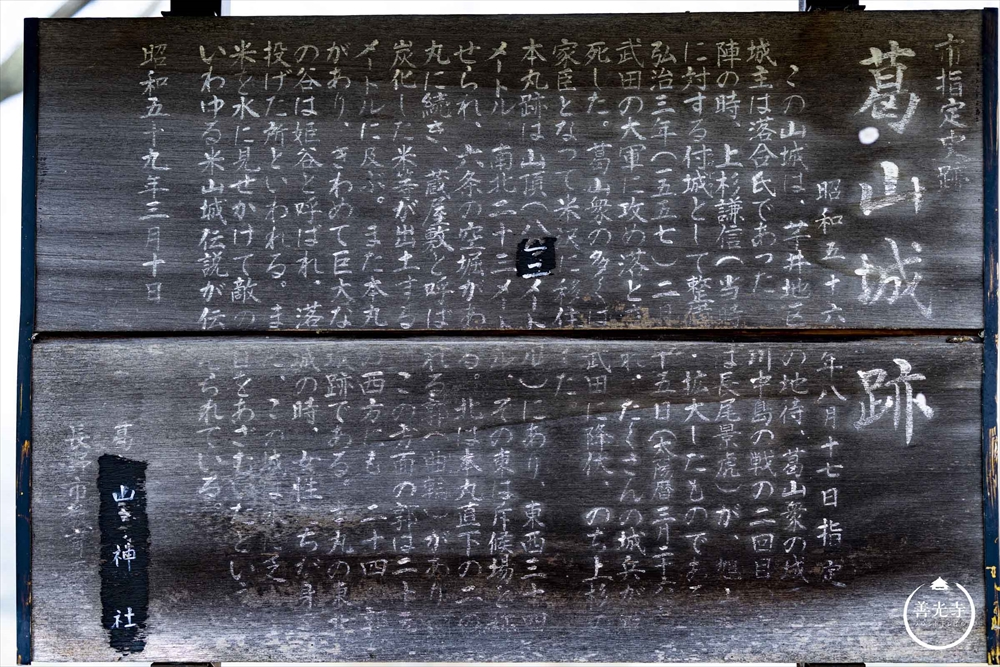 市指定史跡
葛山城跡
昭和五十六年八月十七日指定
この山城は、芋井地区の地侍、葛山衆の城
城主は落合氏であった 川中島の戦の二回目
陣の時、上杉謙信(当時は長尾景虎)が、
に対する付城として整備・拡大したものである
弘治三年(一五五七)二月十五日(太陽暦三月二十
武田の大軍に攻め落とされ、たくさんの城兵が
死した。葛山衆の多くは武田に降伏、のち上杉
家臣となって米沢に移住した
本丸跡は山頂(八一二メートル)にあり、東西三十四
メートル、南北二十三メートル、その東は斥候場と
せられ、六条の空堀がある。北は本丸直下の二
丸に続き、蔵屋敷と呼ばれる郭(曲輪)があり
炭化した米等が出土する この方面の郭は二十
メートルに及ぶ。また本丸の西方にも、二十四
があり、きわめて巨大な跡である。本丸の東北
の谷は姫谷と呼ばれ、落城の時、女性たちが身
投げた所といわれる。また、この城は水
米を水に見せかけて敵の目をあざむいたという
いわゆる米山城伝説が伝えられている。
昭和五十九年三月十日
葛山神社
長野市
善光寺